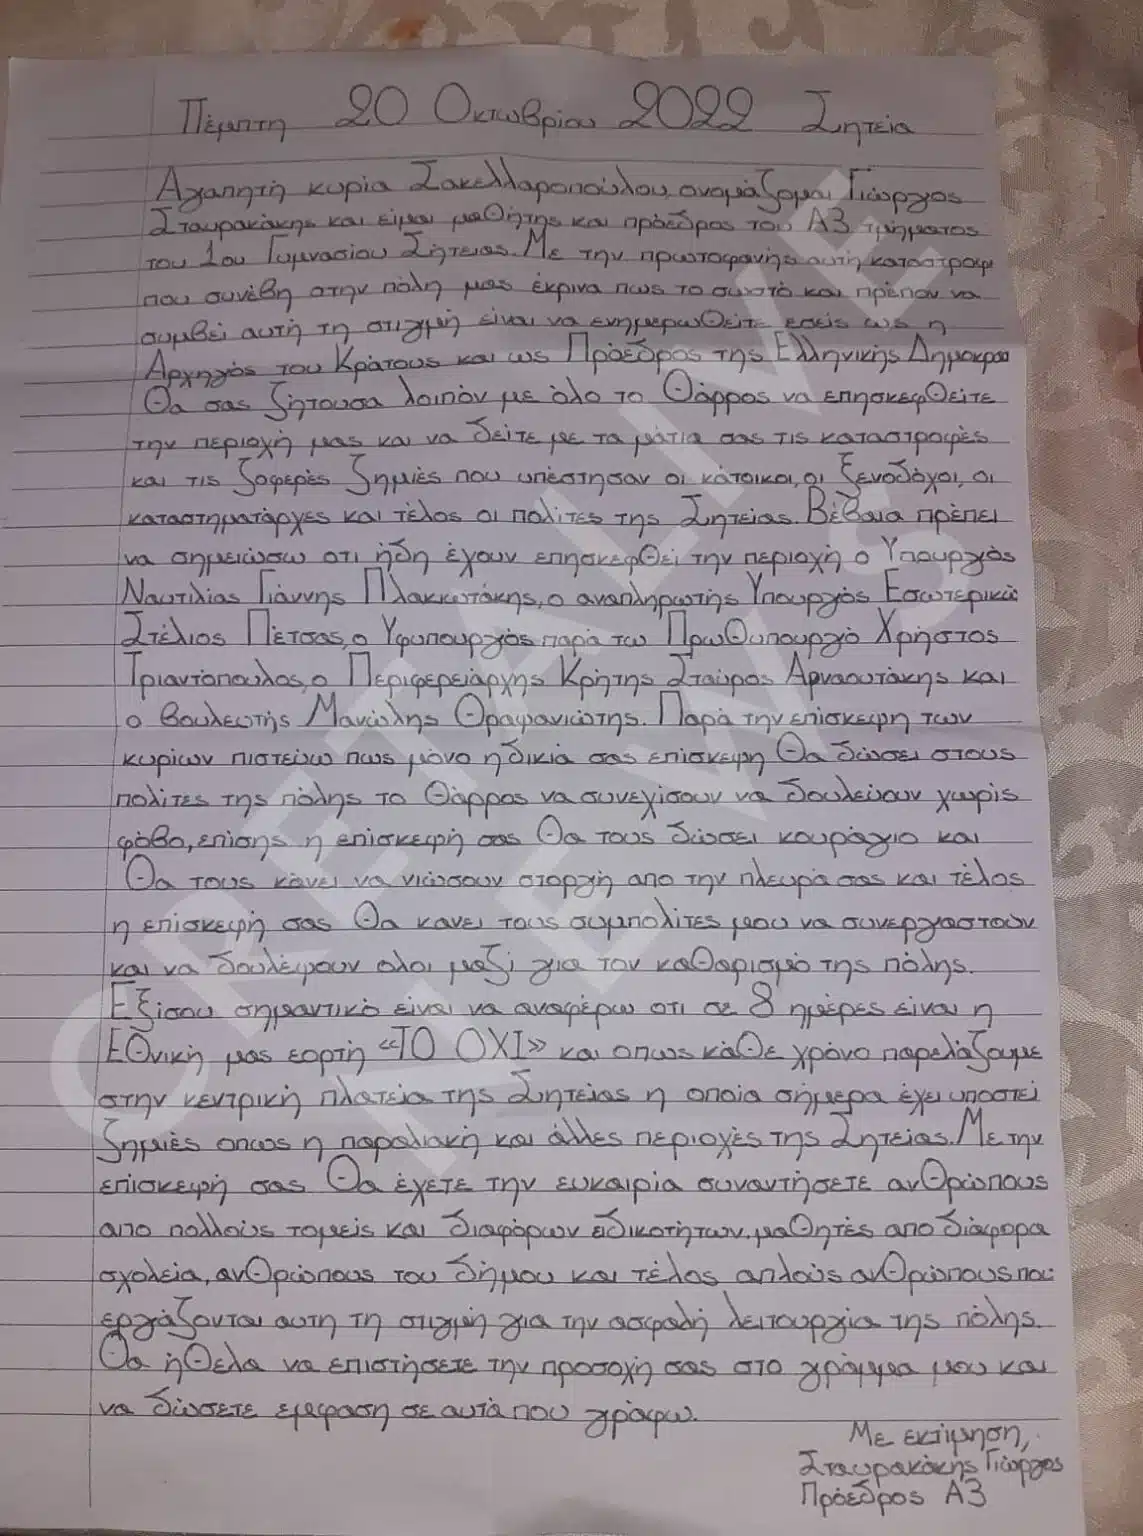 Πέμπτη 20 Οκτωβρίου 2022 Σητεία
Αγαπητή κυρία Σακελλαροπούλου, ονομάζομαι Γιώργος
Σταυρακάκης και είμαι μαθήτης και πρόεδρος του Α3 τμήματος
του 1ου Γυμνασίου Σητείας. Με την πρωτοφανής αυτή καταστροφή
που συνέβη στην πόλη μας έκρινα πως το σωστό και πρέπον να
συμβεί αυτή τη στιγμή είναι να ενημερωθείτε εσείς ως η
Αρχηγός του Κράτους και ως Πρόεδρος της Ελληνικής Δημοκρα
Θα σας ζήτουσα λοιπόν με όλο το Θάρρος να επησκεφθείτε
την περιοχή μας και να δείτε με τα μάτια σας τις καταστροφές
και τις ζοφερές ζημιές που υπέστησαν οι κάτοικοι, οι ξενοδόχοι, οι
καταστηματάρχες και τέλος οι πολίτες της Σητείας. Βέβαια πρέπει
να σημειώσω οτι ήδη έχουν επησκεφθεί την περιοχή ο Υπουργός
Ναυτιλίας Γιάννης Πλακιωτάκης, ο αναπληρωτής Υπουργός Εσωτερικών
Στέλιος Πέτσας, ο Υφυπουργός παρά τω Πρωθυπουργό Χρήστος
Τριαντόπουλος, ο Περιφερειάρχης Κρήτης Σταύρος Αρναουτάκης και
ο βουλευτής Μανώλης Θραψανιώτης. Παρά την επίσκεψη των
κυρίων πιστεύω πως μόνο η δικιά σας επίσκεψη Θα δώσει στους
πολίτες της πόλης το Θάρρος να συνεχίσουν να δουλεύουν χωρίς
φόβο, επίσης η επίσκεψή σας Θα τους δώσει κουράγιο και
Θα τους κάνει να νιώσουν στοργή απο την πλευρά σας και τέλος
η επίσκεψή σας Θα κανει τους συμπολίτες μου να συνεργαστούν
και να δουλέψουν ολοι μαζί για τον καθαρισμό της πόλης.
Εξίσου σημαντικό είναι να αναφέρω οτι σε 8 ημέρες είναι η
Εθνική μας εορτή «ΤΟ ΟΧΙ» και οπως κάθε χρόνο παρελάζουμε
στην κεντρική πλατεία της Σητείας η οποία σήμερα έχει υποστεί
ζημιές οπως η παραλιακή και άλλες περιοχές της Σητείας. Με την
επίσκεψή σας Θα έχετε την ευκαιρία συναντήσετε ανθρώπους
απο πολλούς τομείς και διαφόρων ειδικοτήτων, μαθητές απο διάφορα
σχολεία, ανθρώπους του δήμου και τέλος απλούς ανθρώπους που
εργάζονται αυτη τη στιγμή για την ασφαλή λειτουργία της πόλης.
Θα ήθελα να επιστήσετε την προσοχή σας στο γράμμα μου και
να δώσετε εμφαση σε αυτά που γράφω.
Με εκτίμηση,
Σταυρακάκης Γιώργος
Πρόεδρος Α3
CRETALIVE
NEWS